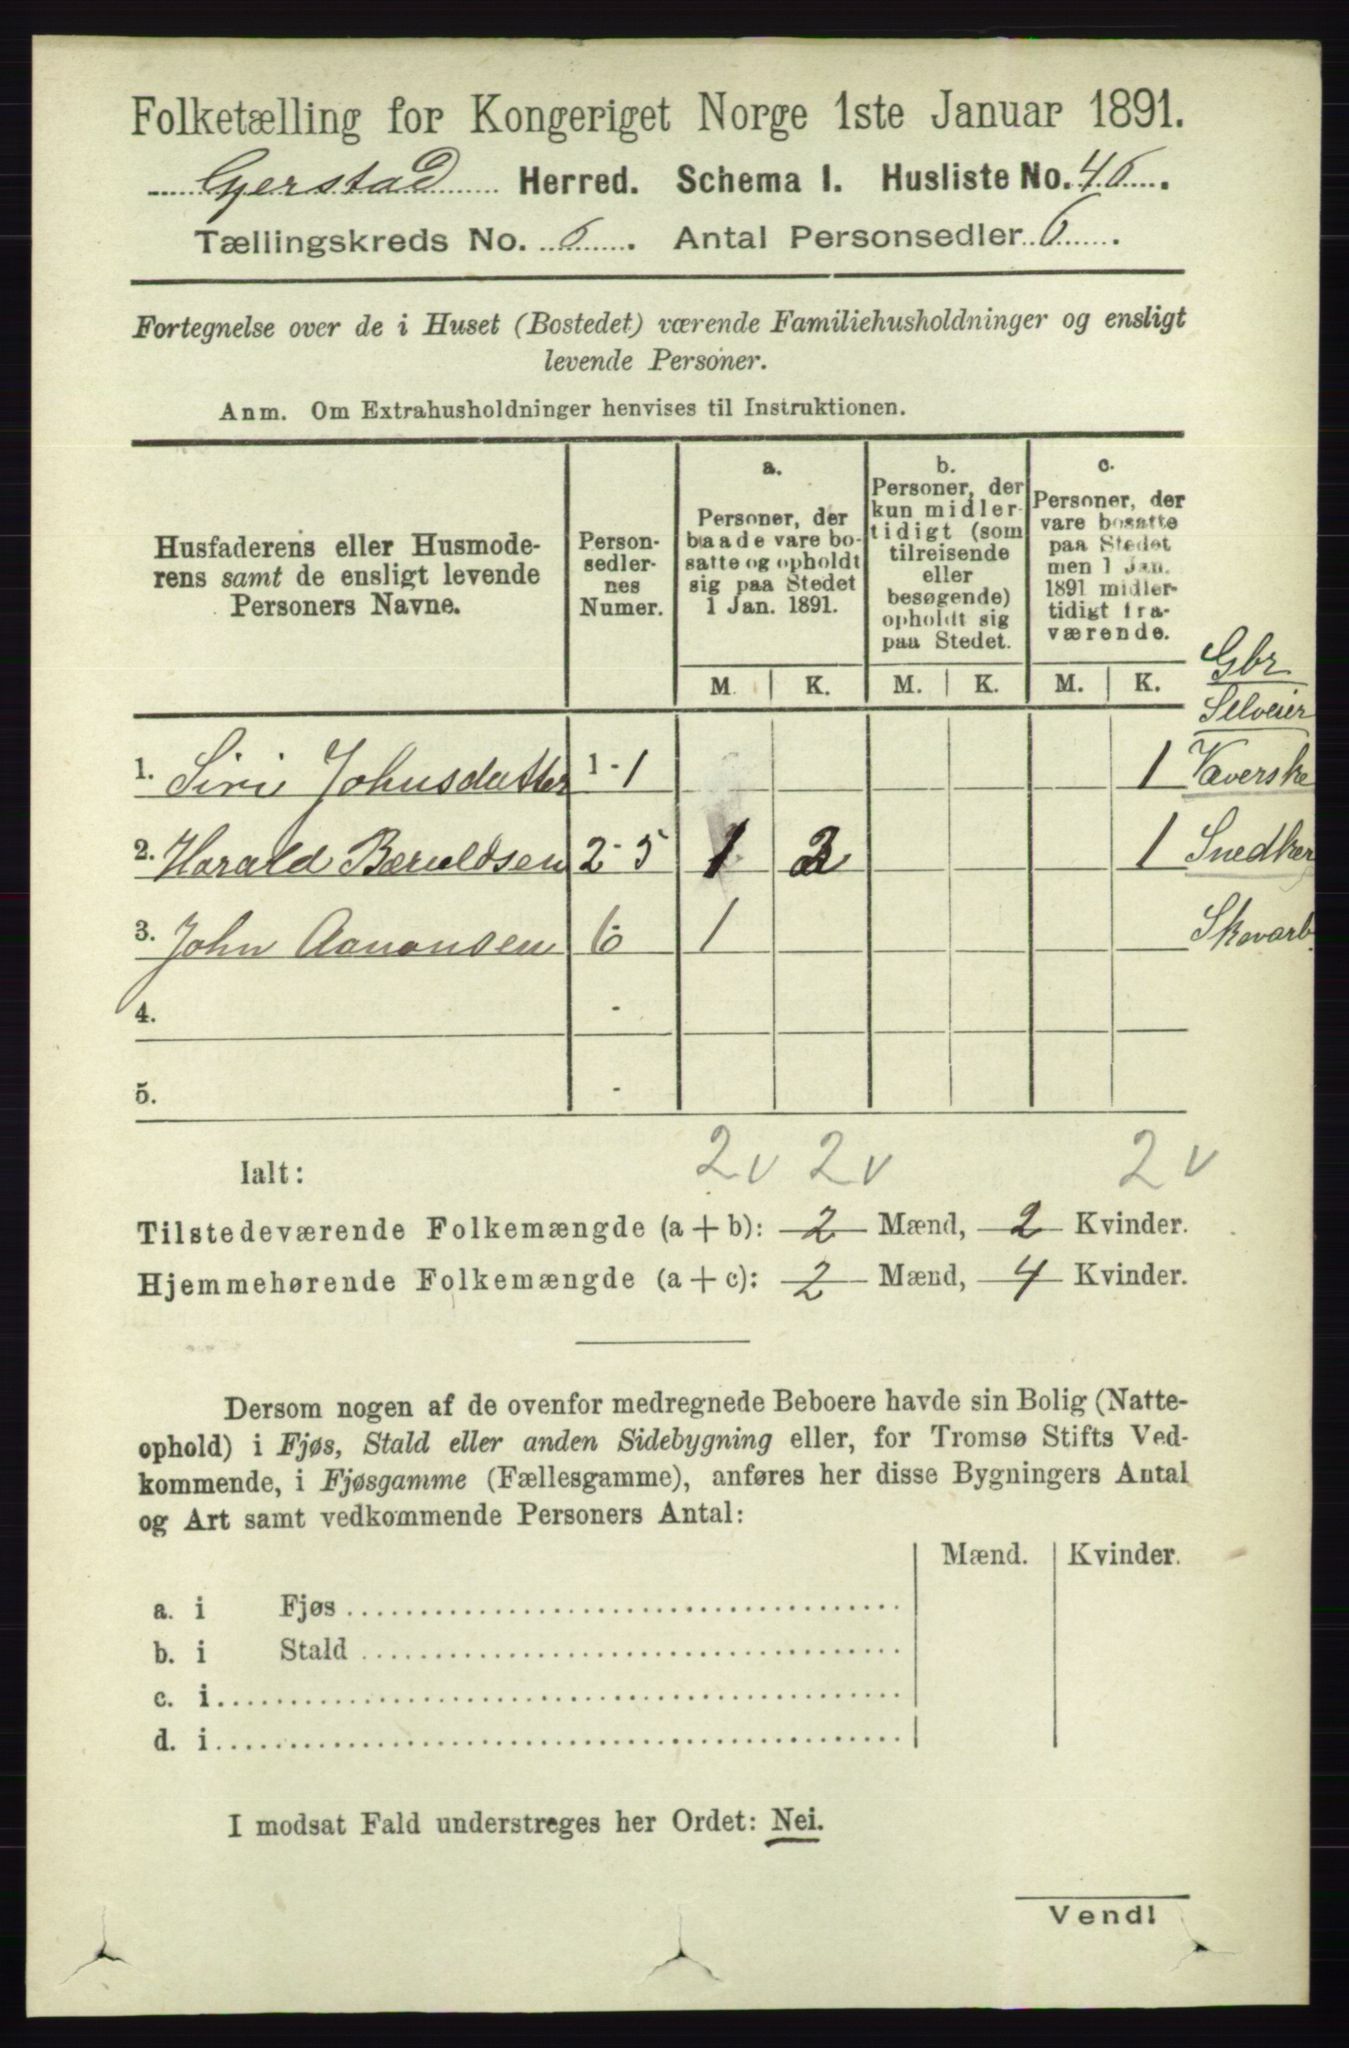 Folketælling for Kongeriget Norge 1ste Januar 1891.
Gjerstad Herred. Schema I. Husliste No. 46.
Tællingskreds No. 6. Antal Personsedler 6.
Fortegnelse over de i Huset (Bostedet) værende Familiehusholdninger og ensligt
levende Personer.
Anm. Om Extrahusholdninger henvises til Instruktionen.
Husfaderens eller Husmode-
rens samt de ensligt levende
Personers Navne.
Person-
sedler-
nes
Numer.
a.
Personer, der
baade vare bo-
satte og opholdt
sig paa Stedet
1 Jan. 1891.
b.
Personer, der
kun midler-
tidigt (som
tilreisende
eller
besøgende)
opholdt sig
paa Stedet.
c.
Personer, der
vare bosatte
paa Stedet
men 1 Jan.
1891 midler-
tidigt fra-
værende.
M. K. M. K. M. K.
Gbr
Selveier
1. Siri Johnsdatter 1 - 1 1 Væverske
2. Harald Beruldsen 2 - 5 1 2 1 Snedker
3. John Aanonsen 6 1 Skovarb
4. -
5. -
Ialt: 2 v 2 v 2 v
Tilstedeværende Folkemængde (a + b): 2 Mænd, 2 Kvinder.
Hjemmehørende Folkemængde (a + c): 2 Mænd, 4 Kvinder.
Dersom nogen af de ovenfor medregnede Beboere havde sin Bolig (Natte-
ophold) i Fjøs, Stald eller anden Sidebygning eller, for Tromsø Stifts Ved-
kommende, i Fjøsgamme (Fællesgamme), anføres her disse Bygningers Antal
og Art samt vedkommende Personers Antal:
Mænd. Kvinder.
a. i Fjøs
b. i Stald
c. i
d. i
I modsat Fald understreges her Ordet: Nei.
Vend!